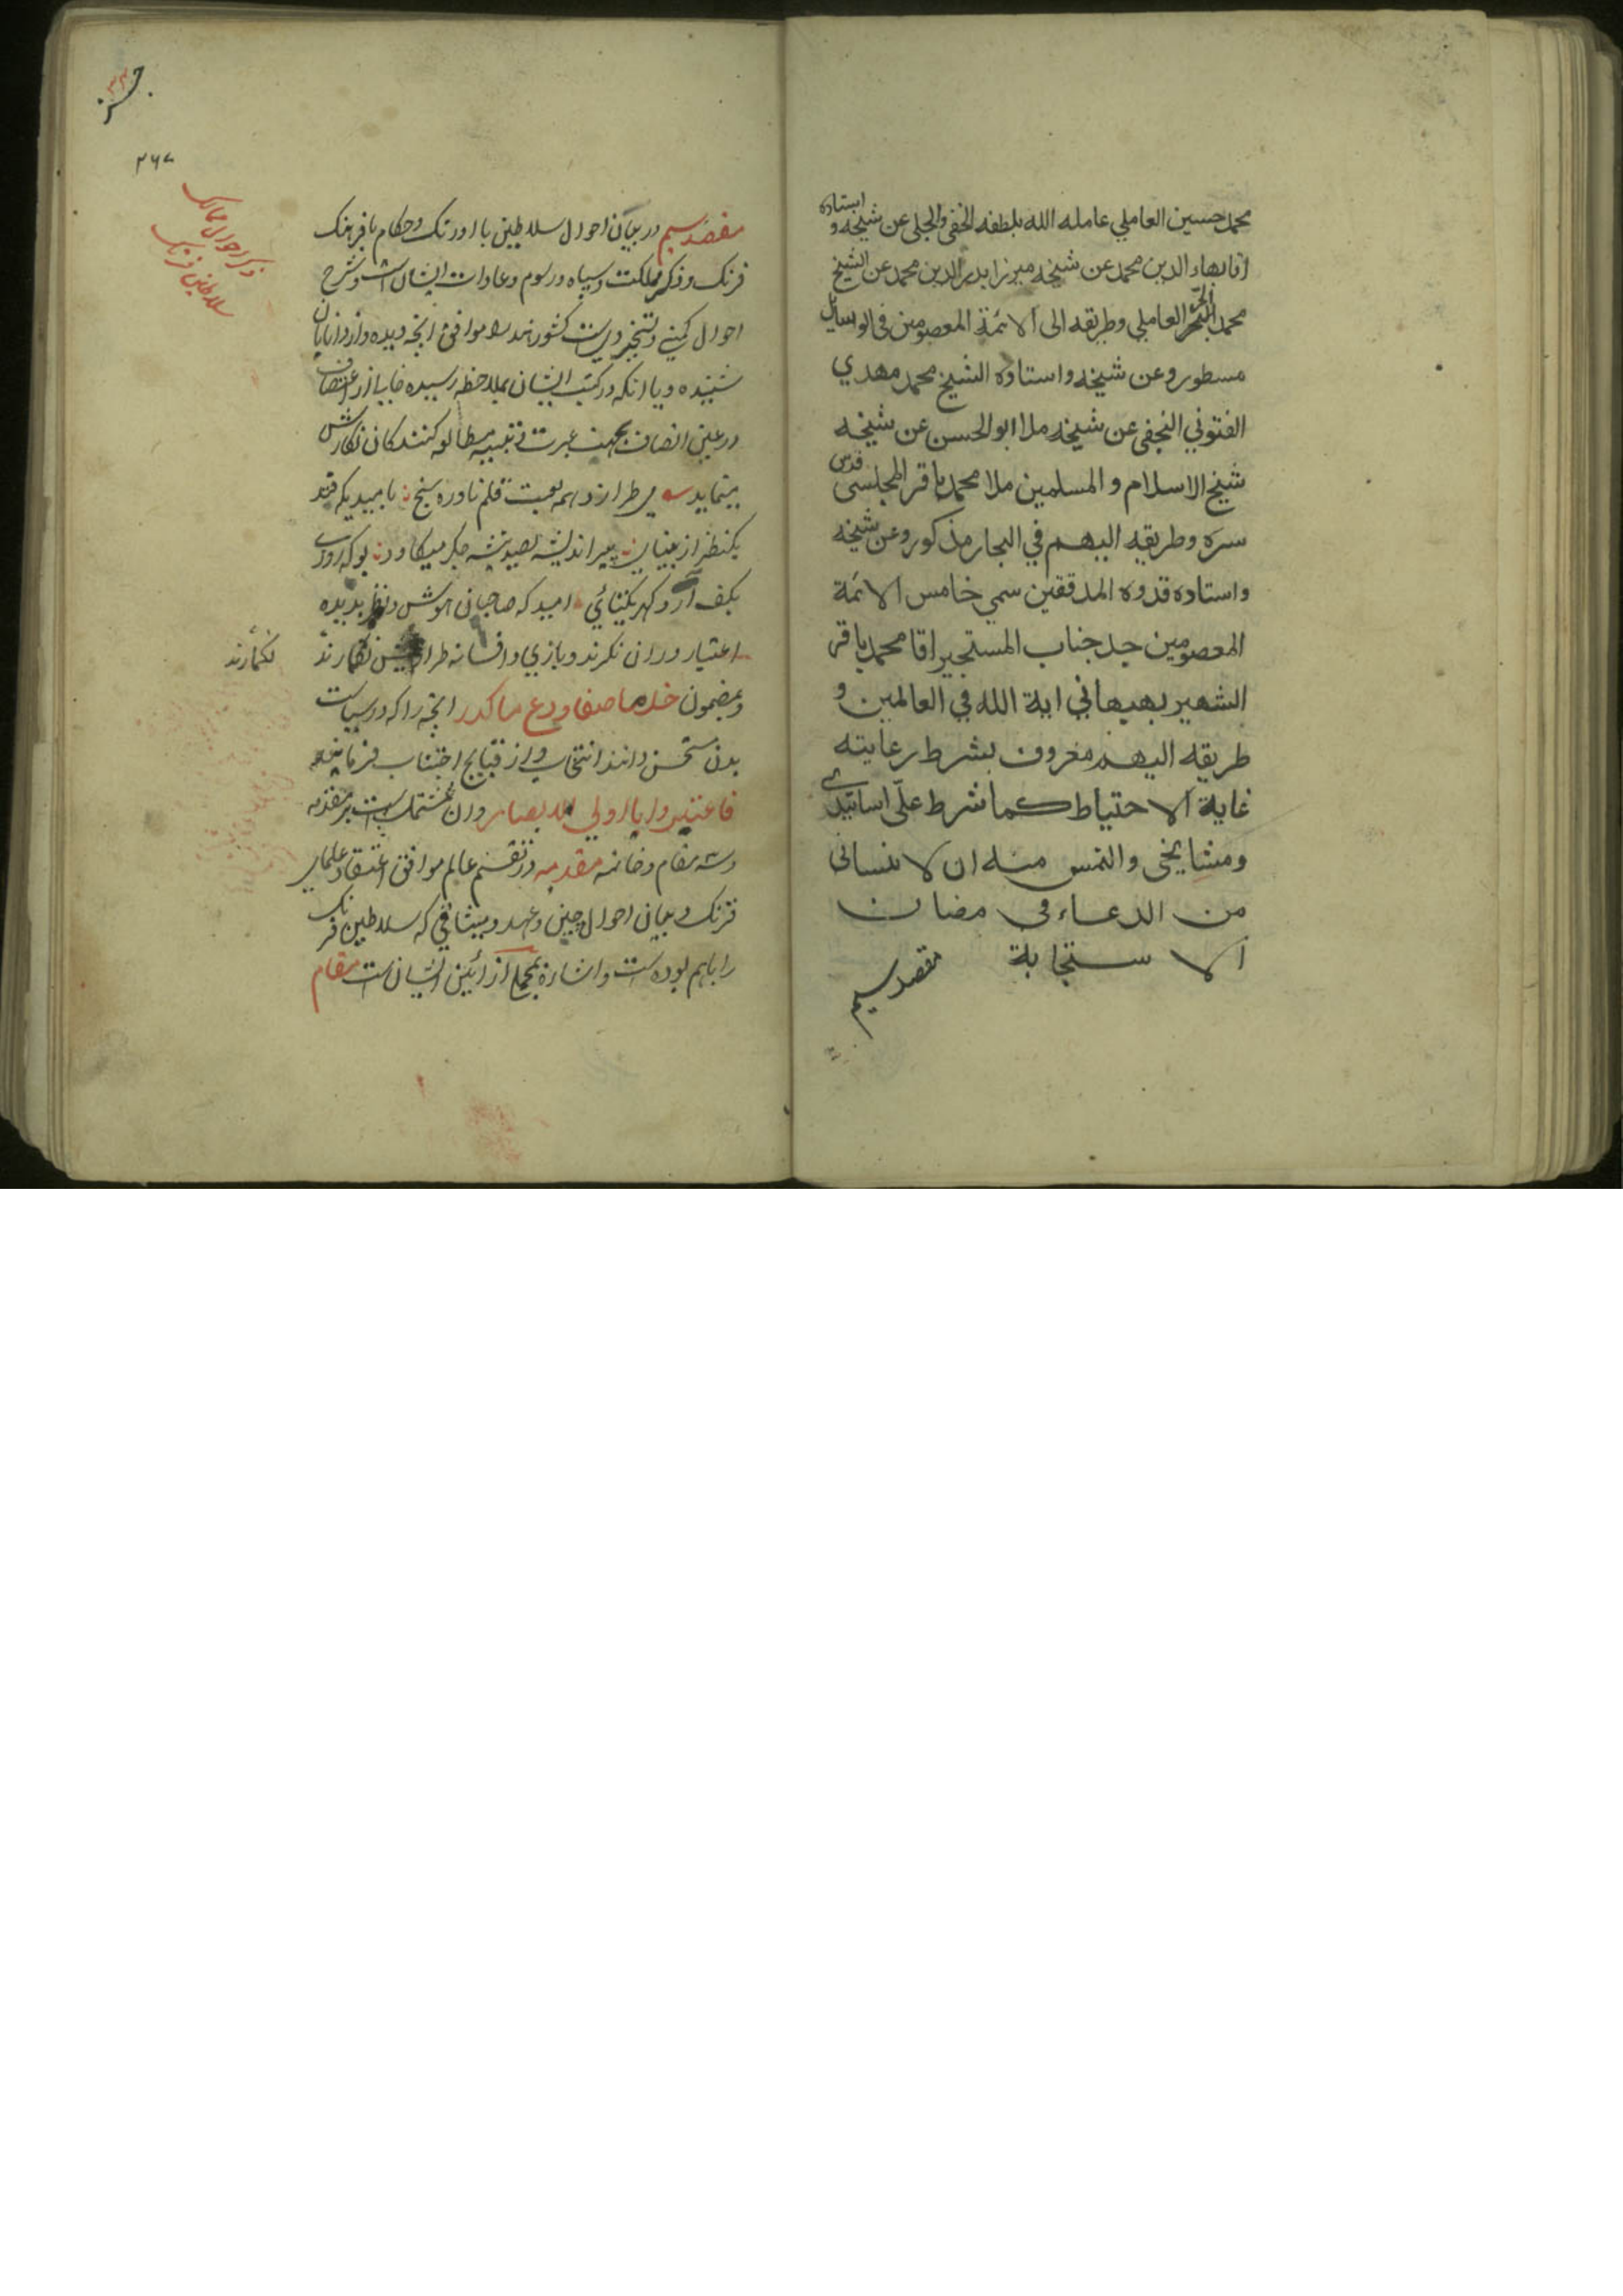 محمد حسين العاملي عامله الله بلطفه الخفي والجلي عن شيخه و استاده
اقا بهاء الدين محمد عن شيخه ميرزا بدر الدين محمد عن الشيخ
محمد الحر العاملي وطريقه الى الائمة المعصومين في الوسايل
مسطور وعن شيخه واستاده الشيخ محمد مهدي
الفتوني النجفي عن شيخه ملا ابو الحسن عن شيخه
شيخ الاسلام والمسلمين ملا محمد باقر المجلسي قدس
سره وطريقه اليهم في البحار مذكور وعن شيخه
واستاده قدوه المدققين سمي خامس الائمة
المعصومين جد جناب المستجيز اقا محمد باقر
الشهير ببهبهاني اية الله في العالمين و
طريقه اليهم معروف بشرط رعايته
غاية الاحتياط كما شرط علّى اساتيدي
ومشايخي والتمس منه ان لا ينساني
من الدعاء في مضان
الاستجابة
مقصد سيم
۲۶۷
ذكر احوال ممالك
سلاطين فرنك
مقصد سيم در بيان احوال سلاطين با اورنك وحكام با فرهنك
فرنك وذكر مملكت وسپاه ورسوم وعادات ايشان است وشرح
احوال كمپني وتسخير ورياست كشور هند موافق انچه ديده واز دانايان
شنيده ويا انكه در كتب ايشان بملاحظه رسيده خاليا از اعتساف
در عين انصاف بجهت عبرت وتنبيه مطالعه كنندكان نكارش
مينمايد مي طرازد همه لعبت قلم نادره سنج باميديكه فتد
يكنظر از بينايي تير انديشه بصد تيشه جكر ميكاود بو كه روزي
بكف آرد كهر يكتائي اميد كه صاحبان هوش ونظر بديده
اعتبار دران نكرند وبازي وافسانه طرازيش نكمارند
نكمارند
وبمضمون خذ ما صفا ودع ما كدر انچه را كه در رياست
بدن مستحسن دانند انتخاب واز قبايح اجتناب فرمايند
فاعتبروا يا اولي الابصار وان مشتمل است بر مقدمه
وسه مقام وخاتمه مقدمه در تقسيم عالم موافق اعتقاد علماي
فرنك وبيان احوال چين وعهد وميثاقي كه سلاطين فرنك
را باهم بوده است واشاره بمجملي از ائين ايشان است مقام